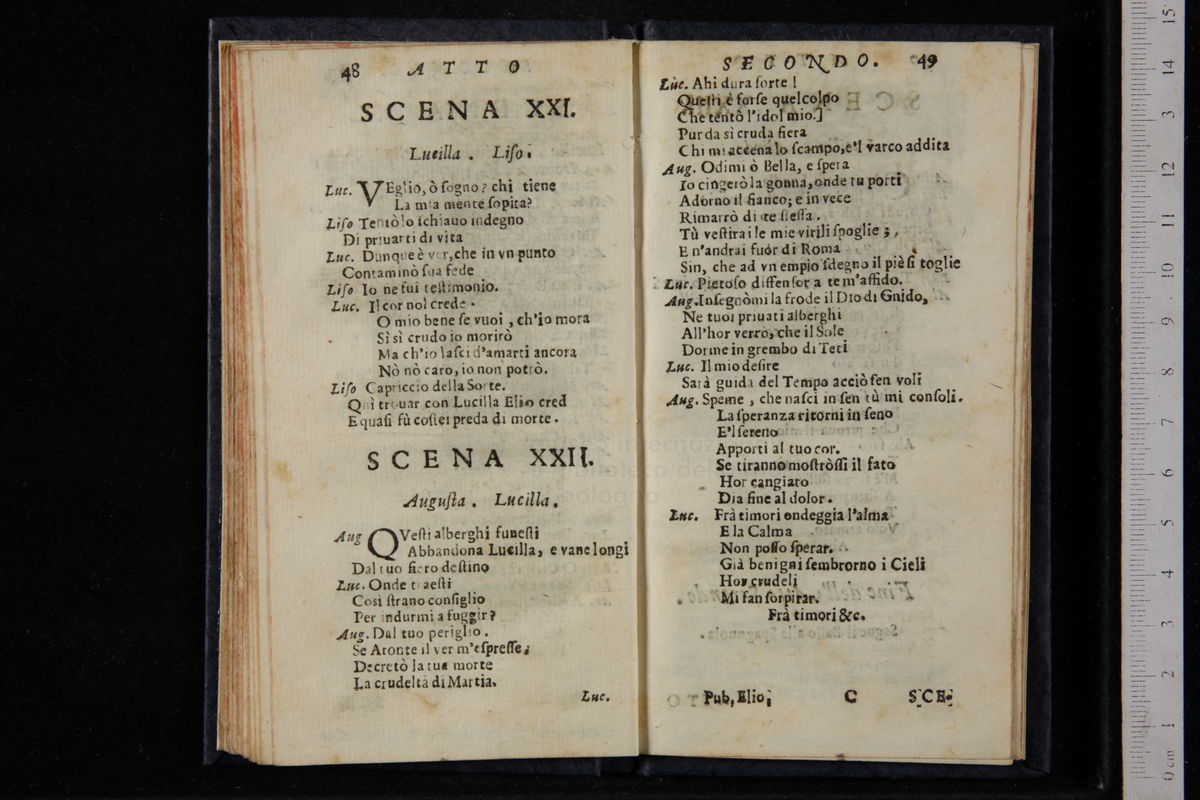 48 ATTO
SCENA XXI.
Lucilla. Liso.
Luc. VEglio, ò sogno? chi tiene
La mia mente sopita?
Liso Tentò lo schiauo indegno
Di priuarti di vita
Luc. Dunque è ver, che in vn punto
Contaminò sua fede
Liso Io ne fui testimonio.
Luc. Il cor nol crede.
O mio bene se vuoi, ch'io mora
Sì sì crudo io morirò
Ma ch'io lasci d'amarti ancora
Nò nò caro, io non potrò.
Liso Capriccio della Sorte.
Quì trouar con Lucilla Elio cred
E quasi fù costei preda di morte.
SCENA XXII.
Augusta. Lucilla.
Aug QVesti alberghi funesti
Abbandona Lucilla, e vane longi
Dal tuo fiero destino
Luc. Onde traesti
Così strano consiglio
Per indurmi a fuggir?
Aug. Dal tuo periglio.
Se Aronte il ver m'espresse;
Decretò la tua morte
La crudeltà di Martia.
Luc.
SECONDO. 49
Luc. Ahi dura sorte!
Questi è forse quel colpo
Che tentò l'idol mio.]
Pur da sì cruda fiera
Chi mi accena lo scampo, e'l varco addita
Aug. Odimi ò Bella, e spera
Io cingerò la gonna, onde tu porti
Adorno il fianco; e in vece
Rimarrò di te stessa.
Tù vestirai le mie virili spoglie;,
E n'andrai fuor di Roma
Sin, che ad vn empio sdegno il piè si toglie
Luc. Pietoso diffensor a te m'affido.
Aug. Insegnòmi la frode il Dio di Gnido,
Ne tuoi priuati alberghi
All'hor verrò, che il Sole
Dorme in grembo di Teti
Luc. Il mio desire
Sarà guida del Tempo acciò sen voli
Aug. Speme, che nasci in sen tù mi consoli.
La speranza ritorni in seno
E'l sereno
Apporti al tuo cor.
Se tiranno mostròssi il fato
Hor cangiato
Dia fine al dolor.
Luc. Frà timori ondeggia l'alma
E la Calma
Non posso sperar.
Già benigni sembrorno i Cieli
Hor crudeli
Mi fan sospirar.
Frà timori &c.
Pub, Elio; C SCE-